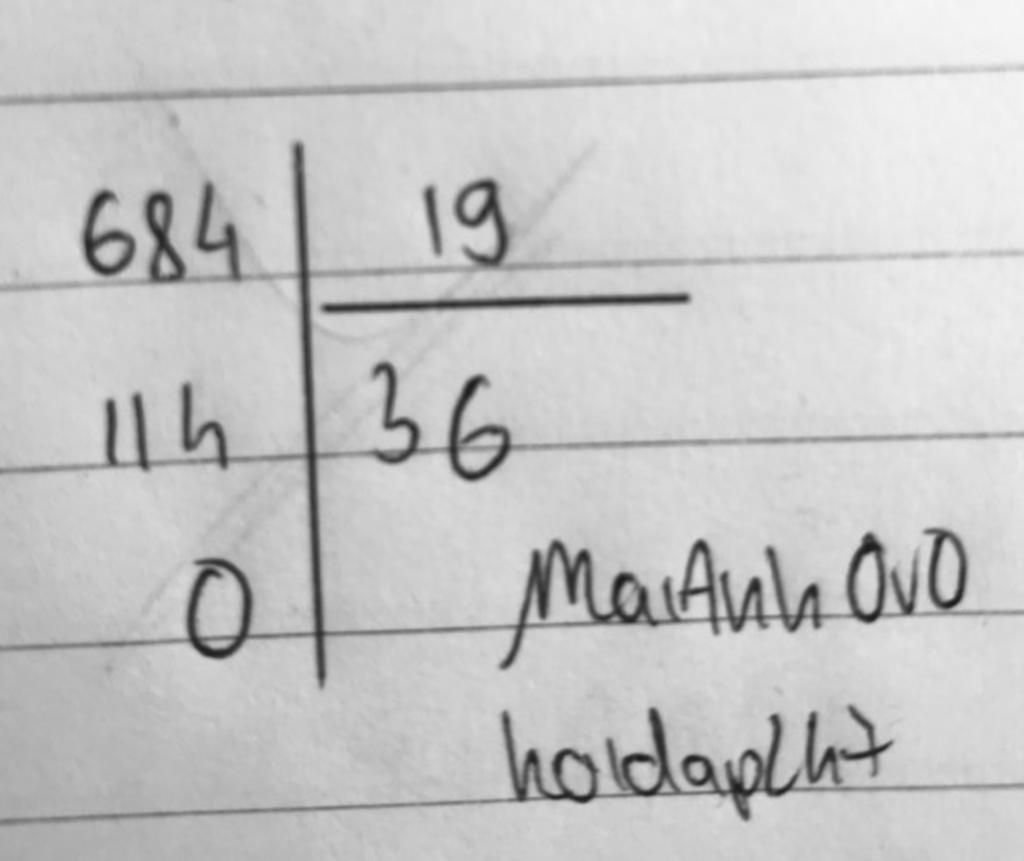 684 19
114 36
0
MaiAnh OvO
hoidap247